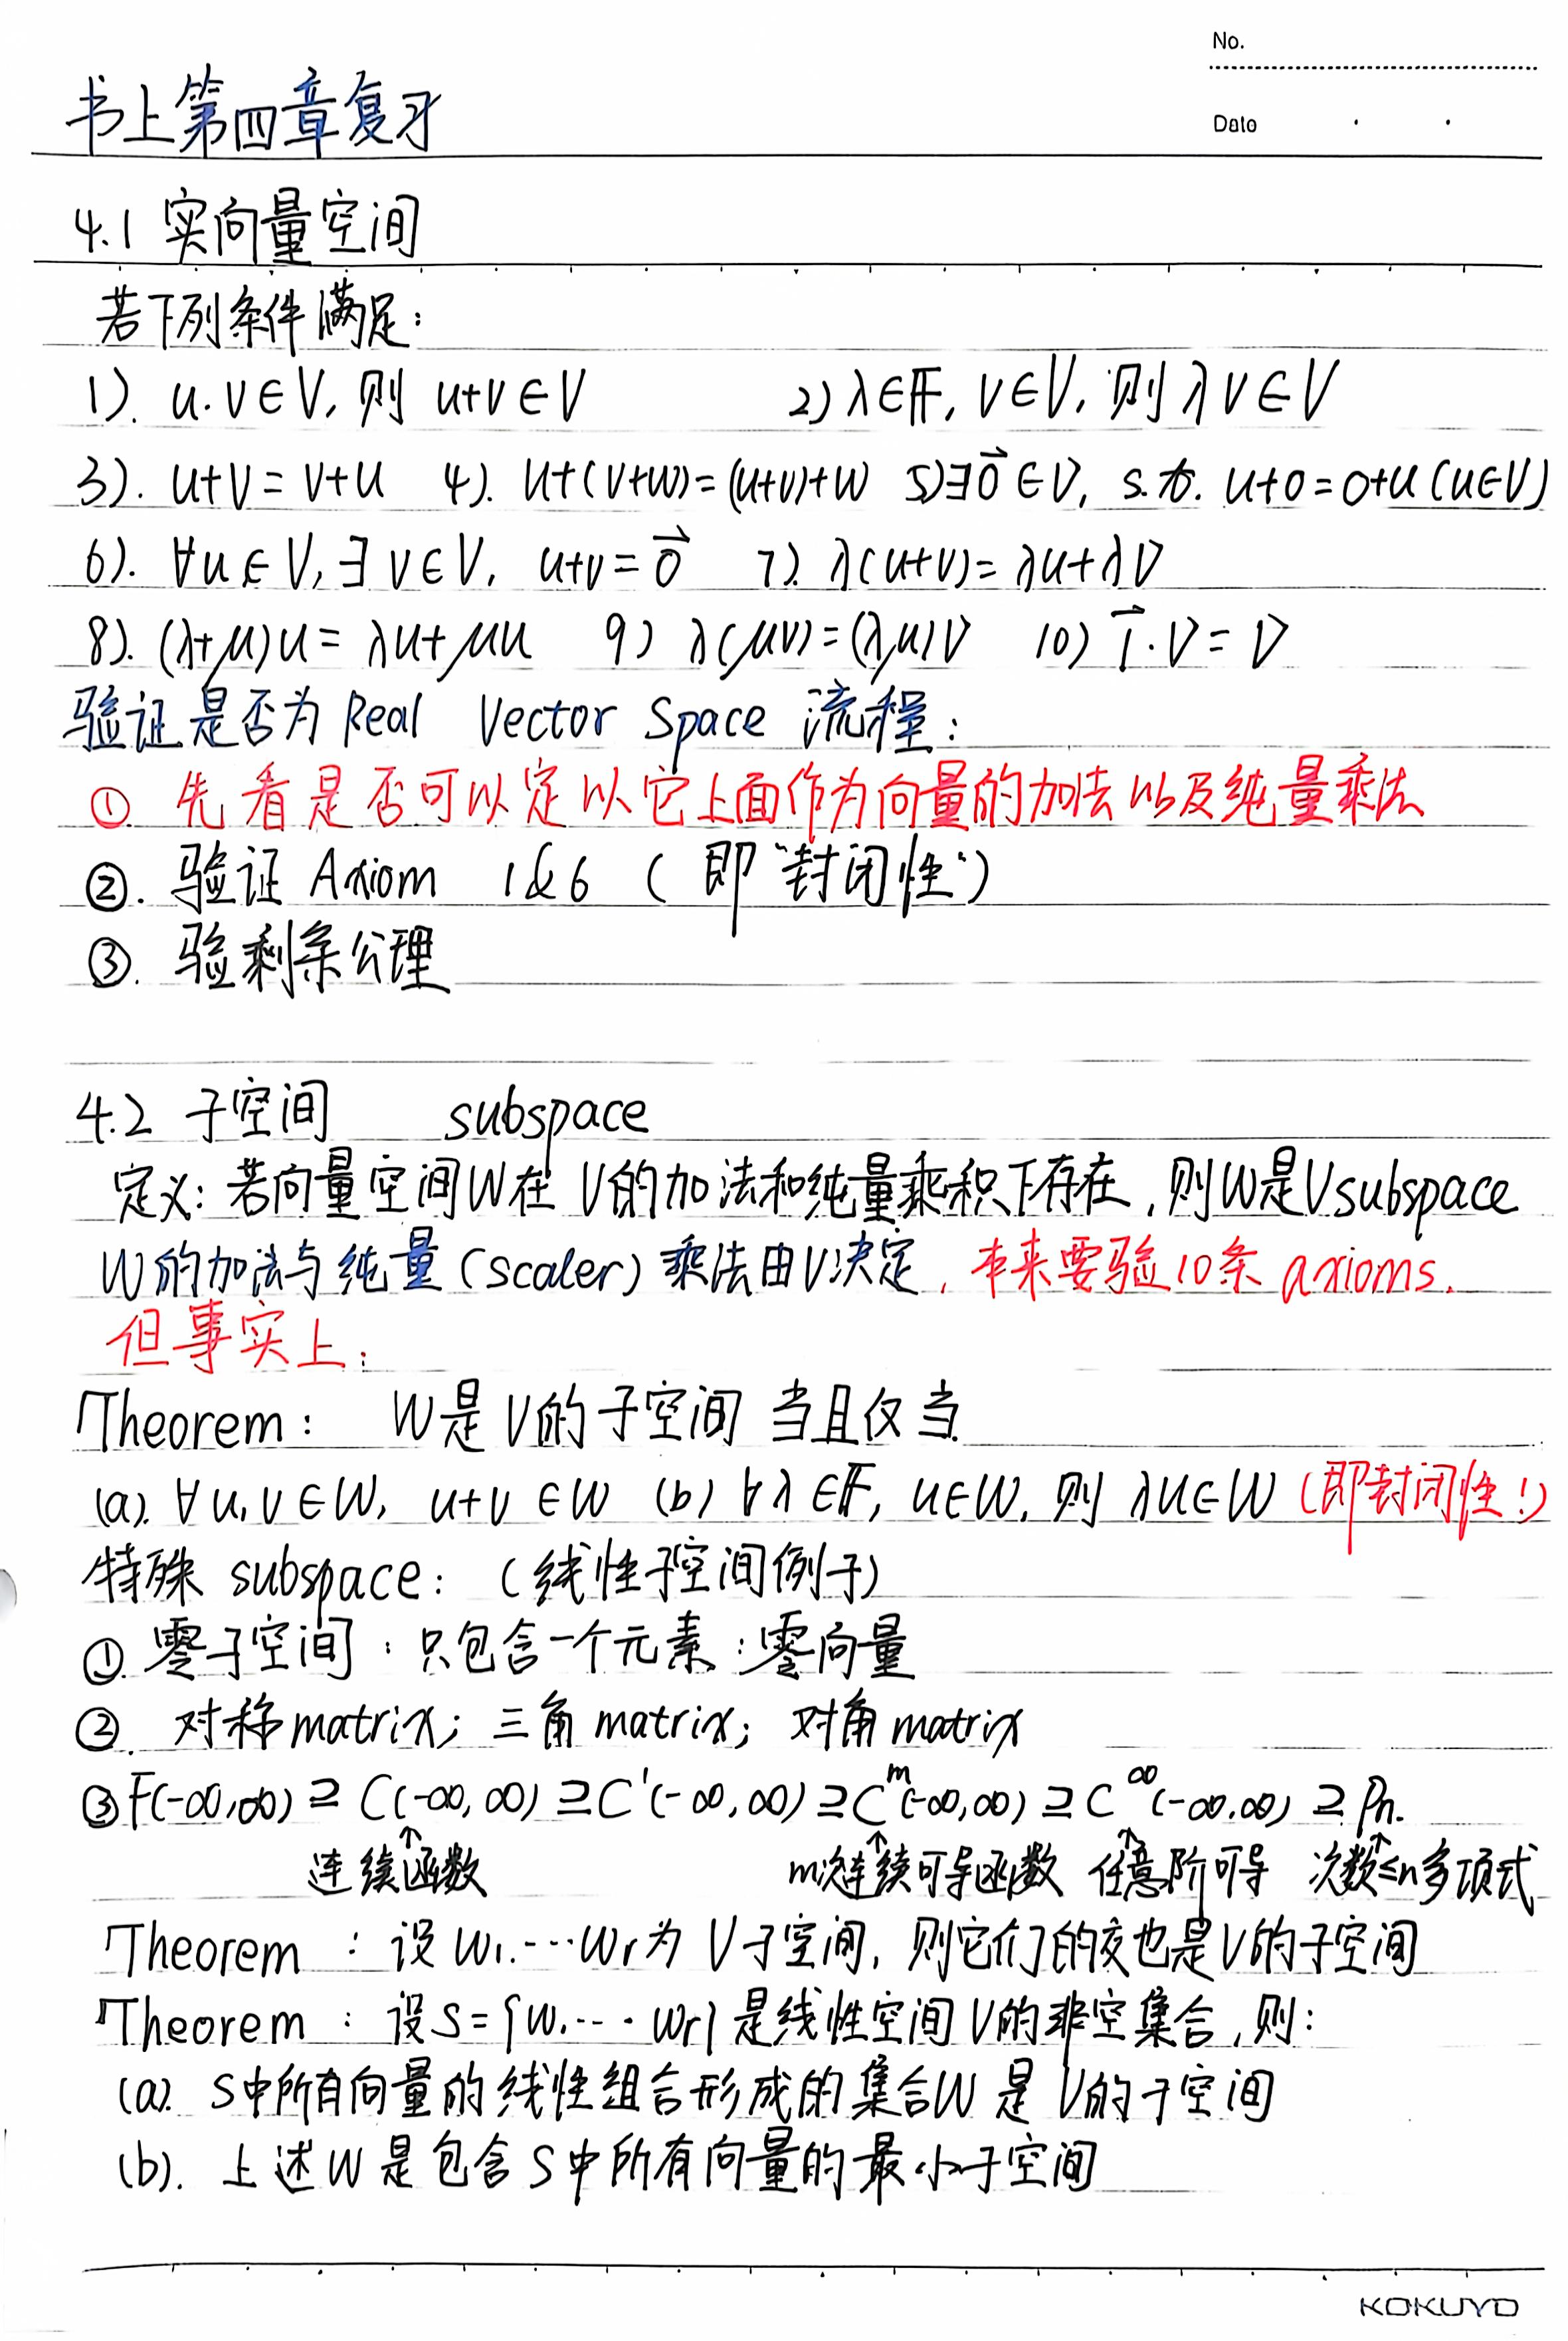 No.
Date
书上第四章复习
4.1 实向量空间
若下列条件满足:
1). u.v∈V, 则 u+v∈V 2) λ∈𝔽, v∈V, 则 λv∈V
3). u+v=v+u 4). u+(v+w)=(u+v)+w 5)∃0⃗∈V, s.t. u+0=0+u (u∈V)
6). ∀u∈V, ∃v∈V, u+v=0⃗ 7). λ(u+v)=λu+λv
8). (λ+μ)u=λu+μu 9) λ(μv)=(λμ)v 10) 1⃗·v=v
验证是否为 Real Vector Space 流程:
① 先看是否可以定以它上面作为向量的加法以及纯量乘法
②. 验证 Axiom 1&6 (即“封闭性”)
③. 验剩余公理
4.2 子空间 subspace
定义: 若向量空间W在V的加法和纯量乘积下存在, 则W是V subspace
W的加法与纯量(scaler)乘法由V决定, 本来要验10条 axioms.
但事实上:
Theorem: W是V的子空间 当且仅当
(a). ∀u,v∈W, u+v∈W (b) ∀λ∈𝔽, u∈W, 则 λu∈W (即封闭性!)
特殊 subspace: (线性子空间例子)
① 零子空间: 只包含一个元素: 零向量
②. 对称matrix; 三角matrix; 对角matrix
③ F(-∞,∞) ⊇ C(-∞,∞) ⊇ C¹(-∞,∞) ⊇ Cᵐ(-∞,∞) ⊇ C^∞(-∞,∞) ⊇ Pn.
↑ ↑ ↑ ↑
连续函数 m次连续可导函数 任意阶可导 次数≤n多项式
Theorem: 设 W1.···Wr为V子空间, 则它们的交也是V的子空间
Theorem: 设S={W1.···Wr}是线性空间V的非空集合, 则:
(a). S中所有向量的线性组合形成的集合W 是 V的子空间
(b). 上述W是包含S中所有向量的最小子空间
KOKUYO